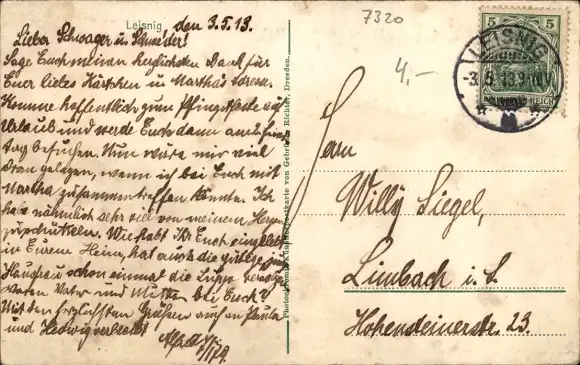 Leisnig den 3.5.13.
Lieber Schwager u. Schwester!
Sage Euch meinen herzlichsten Dank für
Euer liebes Kärtchen u. Martha's Adresse.
Komme hoffentlich zum Pfingstfeste auf
Urlaub und werde Euch dann am
besuchen. Nun wäre mir viel
dran gelegen, wenn ich bei Euch mit
Martha zusammentreffen könnte. Ich
habe nähmlich sehr viel von meinem Herzen
Wie habt Ihr Euch eingelebt
in Eurem Heim, hat auch die
Hausfrau schon einmal die Suppe
Vater und Mutter bei Euch?
Mit den herzlichsten Grüßen auch an Paula
und Hedwig verbleibt
7320
4.-
5 5
REICH
LEISNIG
-3.5.13.9-10V
Herrn
Willy Siegel,
Limbach i. S.
Hohensteinerstr. 23.
Photographie und Kunstdruckpostkarte von Gebrüder Richter, Dresden.